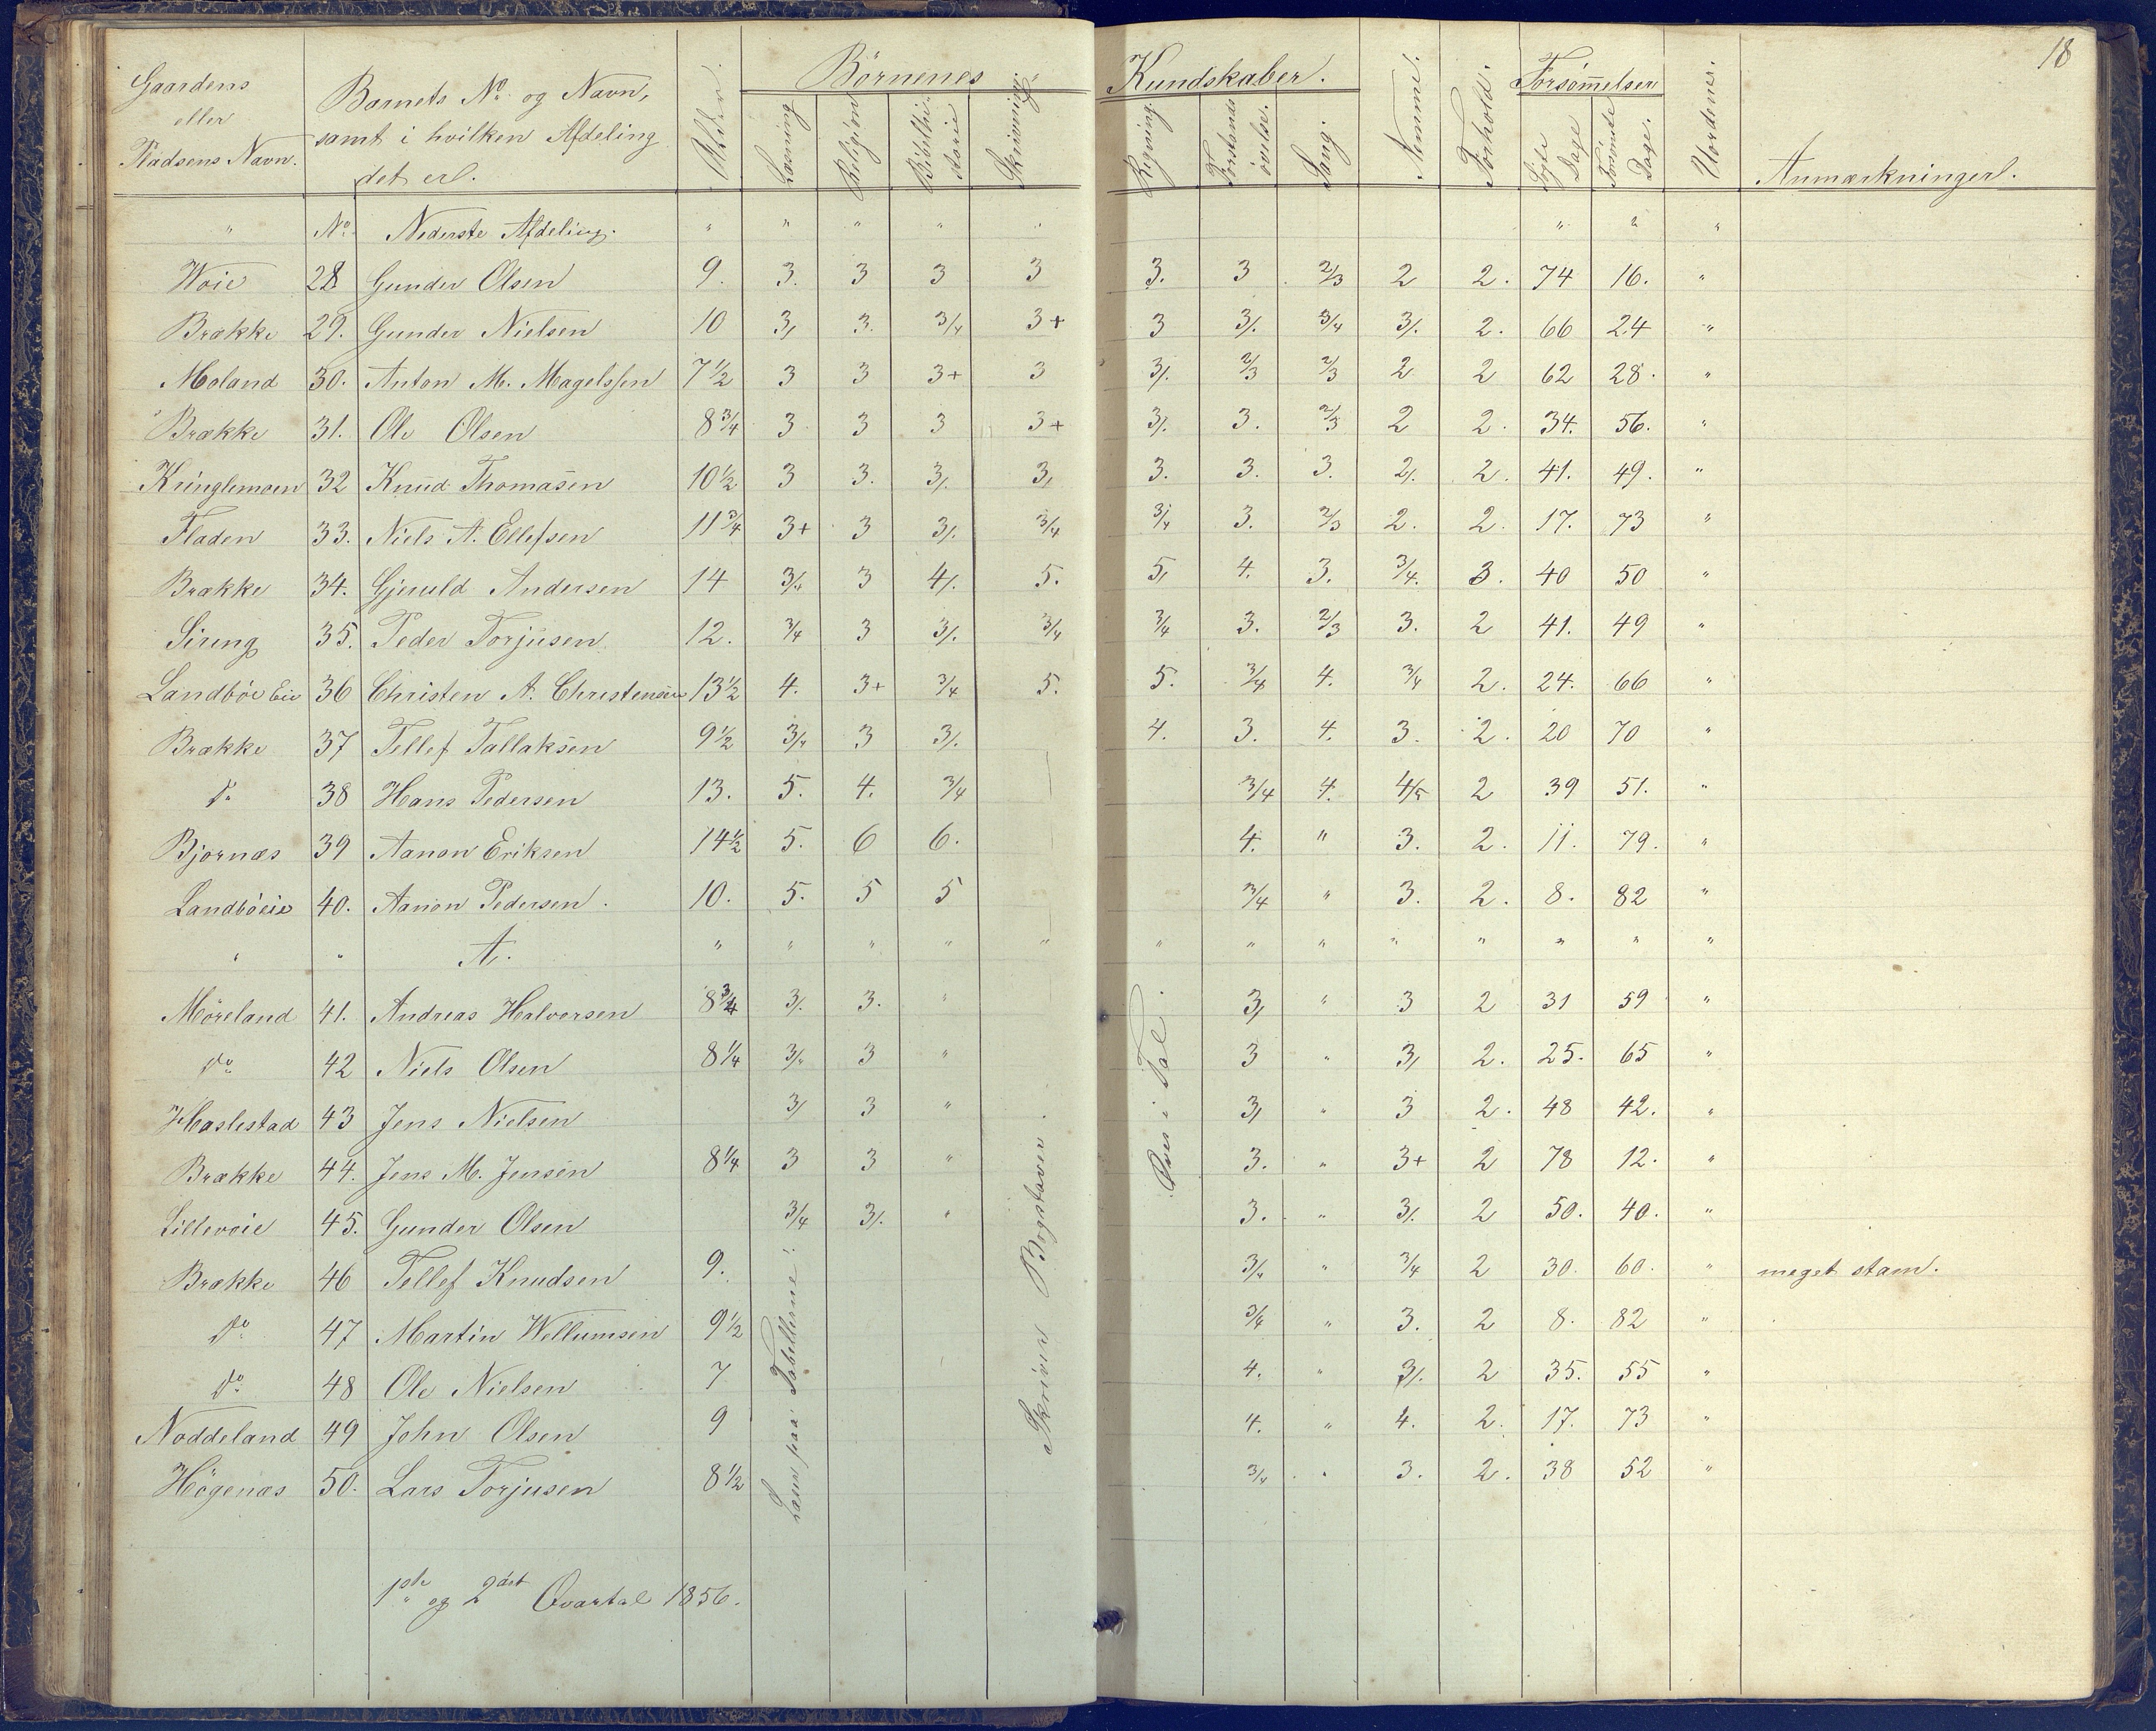 18
Gaardens eller Pladsens Navn. | Barnets No og Navn, samt i hvilken Afdeling det er. | Alder. | Börnenes Kundskaber. | Nemme. | Forhold. | Forsömmelser | Uordener. | Anmærkninger.
Læsning | Religion | Bibelhistorie | Skrivning. | Regning. | Forstandsövelse. | Sang. | Dage | Dage.
" | No | Nederste Afdeling. | " | " | " | " | " | " | " | "
Woie | 28 | Gunder Olsen | 9. | 3. | 3 | 3 | 3 | 3. | 3 | 2/3 | 2 | 2. | 74 | 16. | "
Brække | 29. | Gunder Nielsen | 10 | 3/ | 3. | 3/4 | 3+ | 3 | 3/. | 3/4 | 3/. | 2. | 66 | 24 | "
Moland | 30. | Anton M. Magelssen | 7 1/2 | 3 | 3 | 3+ | 3 | 3/. | 2/3 | 2/3 | 2 | 2 | 62 | 28. | "
Brække | 31. | Ole Olsen | 8 3/4 | 3 | 3 | 3 | 3+ | 3/. | 3. | 2/3 | 2 | 2. | 34. | 56. | "
Kringlemoen | 32 | Knud Thomasen | 10 1/2 | 3 | 3. | 3/. | 3/ | 3. | 3. | 3. | 2/. | 2. | 41. | 49. | "
Fladen | 33. | Niels A. Ellefsen | 11 3/4 | 3+ | 3 | 3/. | 3/4 | 3/4 | 3. | 2/3 | 2. | 2. | 17. | 73 | "
Brække | 34. | Gjeruld Andersen | 14 | 3/4 | 3 | 4/. | 5. | 5/ | 4. | 3. | 3/4. | 3. | 40 | 50 | "
Sireng | 35. | Peder Torjusen | 12. | 3/4 | 3 | 3/. | 3/4 | 3/4 | 3. | 2/3 | 3. | 2 | 41. | 49 | "
Landböe Eie | 36 | Christen A. Christensen | 13 1/2 | 4. | 3+ | 3/4 | 5. | 5. | 3/4 | 4. | 3/4 | 2. | 24. | 66 | "
Brække | 37 | Tellef Tallaksen | 9 1/2 | 3/4 | 3 | 3/. | 4. | 3. | 4. | 3. | 2. | 20 | 70 | "
do | 38 | Hans Pedersen | 13. | 5. | 4. | 3/4 | 3/4 | 4. | 4/5 | 2 | 39 | 51. | "
Bjornæs | 39 | Aanon Eriksen | 14 1/2 | 5. | 6 | 6. | 4. | " | 3. | 2. | 11. | 79. | "
Landböeie | 40. | Aanon Pedersen. | 10. | 5. | 5 | 5 | 3/4 | " | 3. | 2. | 8. | 82 | "
" | " | A. | " | " | " | " | " | " | " | " | " | " | " | " | "
Möreland | 41. | Andreas Halvorsen | 8 3/4 | 3/. | 3. | " | 3/ | " | 3 | 2 | 31 | 59 | "
do | 42 | Niels Olsen | 8 1/4 | 3/4 | 3 | " | 3 | " | 3/ | 2. | 25. | 65 | "
Haslestad | 43 | Jens Nielsen | 3/ | 3 | " | 3/ | " | 3 | 2. | 48 | 42. | "
Brække | 44. | Jens M. Jensen | 8 1/4 | 3 | 3 | " | 3. | " | 3+ | 2 | 78 | 12. | "
Lillevoie | 45. | Gunder Olsen | 3/4 | 3/. | " | 3. | " | 3/. | 2 | 50. | 40. | "
Brække | 46 | Tellef Knudsen | 9. | 3/4 | " | 3/4 | 2 | 30. | 60. | " | meget stam.
do | 47 | Martin Wellumsen | 9 1/2 | 3/4 | " | 3. | 2 | 8. | 82 | "
do | 48 | Ole Nielsen | 7 | 4. | " | 3/. | 2 | 35. | 55 | "
Noddeland | 49 | John Olsen | 9 | 4. | " | 4. | 2. | 17. | 73 | "
Högenæs | 50. | Lars Torjusen | 8 1/2 | 3/4 | " | 3. | 2. | 38 | 52 | "
paa Tabellerne.
Skriver Bogstaver.
i Tal.
1ste og 2det Qvartal 1856.